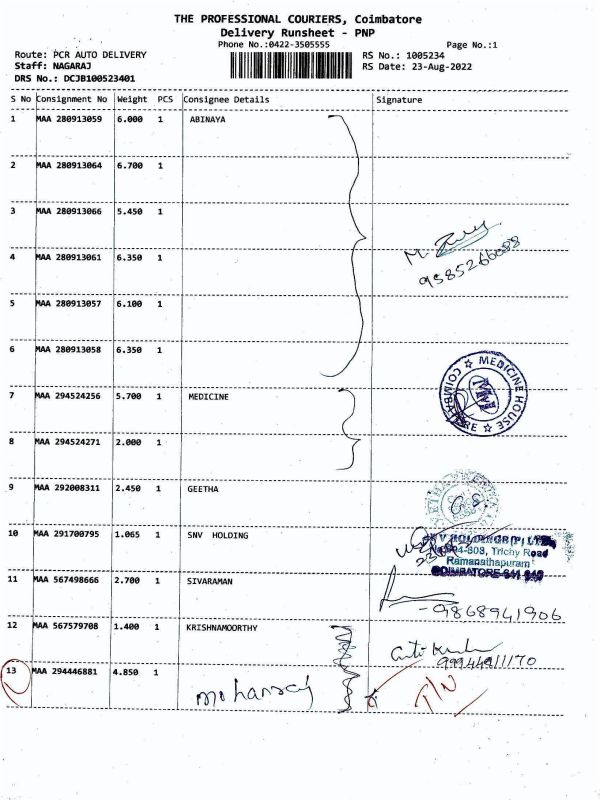 THE PROFESSIONAL COURIERS, Coimbatore
Delivery Runsheet - PNP
Phone No.:0422-3505555 Page No.:1
Route: PCR AUTO DELIVERY RS No.: 1005234
Staff: NAGARAJ RS Date: 23-Aug-2022
DRS No.: DCJB100523401
S No Consignment No Weight PCS Consignee Details Signature
1 MAA 280913059 6.000 1 ABINAYA
2 MAA 280913064 6.700 1
3 MAA 280913066 5.450 1
M.
4 MAA 280913061 6.350 1
9585266088
5 MAA 280913057 6.100 1
6 MAA 280913058 6.350 1
MEDICINE HOUSE
COIMBATORE
7 MAA 294524256 5.700 1 MEDICINE
8 MAA 294524271 2.000 1
9 MAA 292008311 2.450 1 GEETHA
10 MAA 291700795 1.065 1 SNV HOLDING
V HOLDINGS (P) LTD
Trichy Road
Ramanathapuram
COIMBATORE
11 MAA 567498666 2.700 1 SIVARAMAN
-9868941906
12 MAA 567579708 1.400 1 KRISHNAMOORTHY
99944911170
13 MAA 294446881 4.850 1
mohanraj T/N